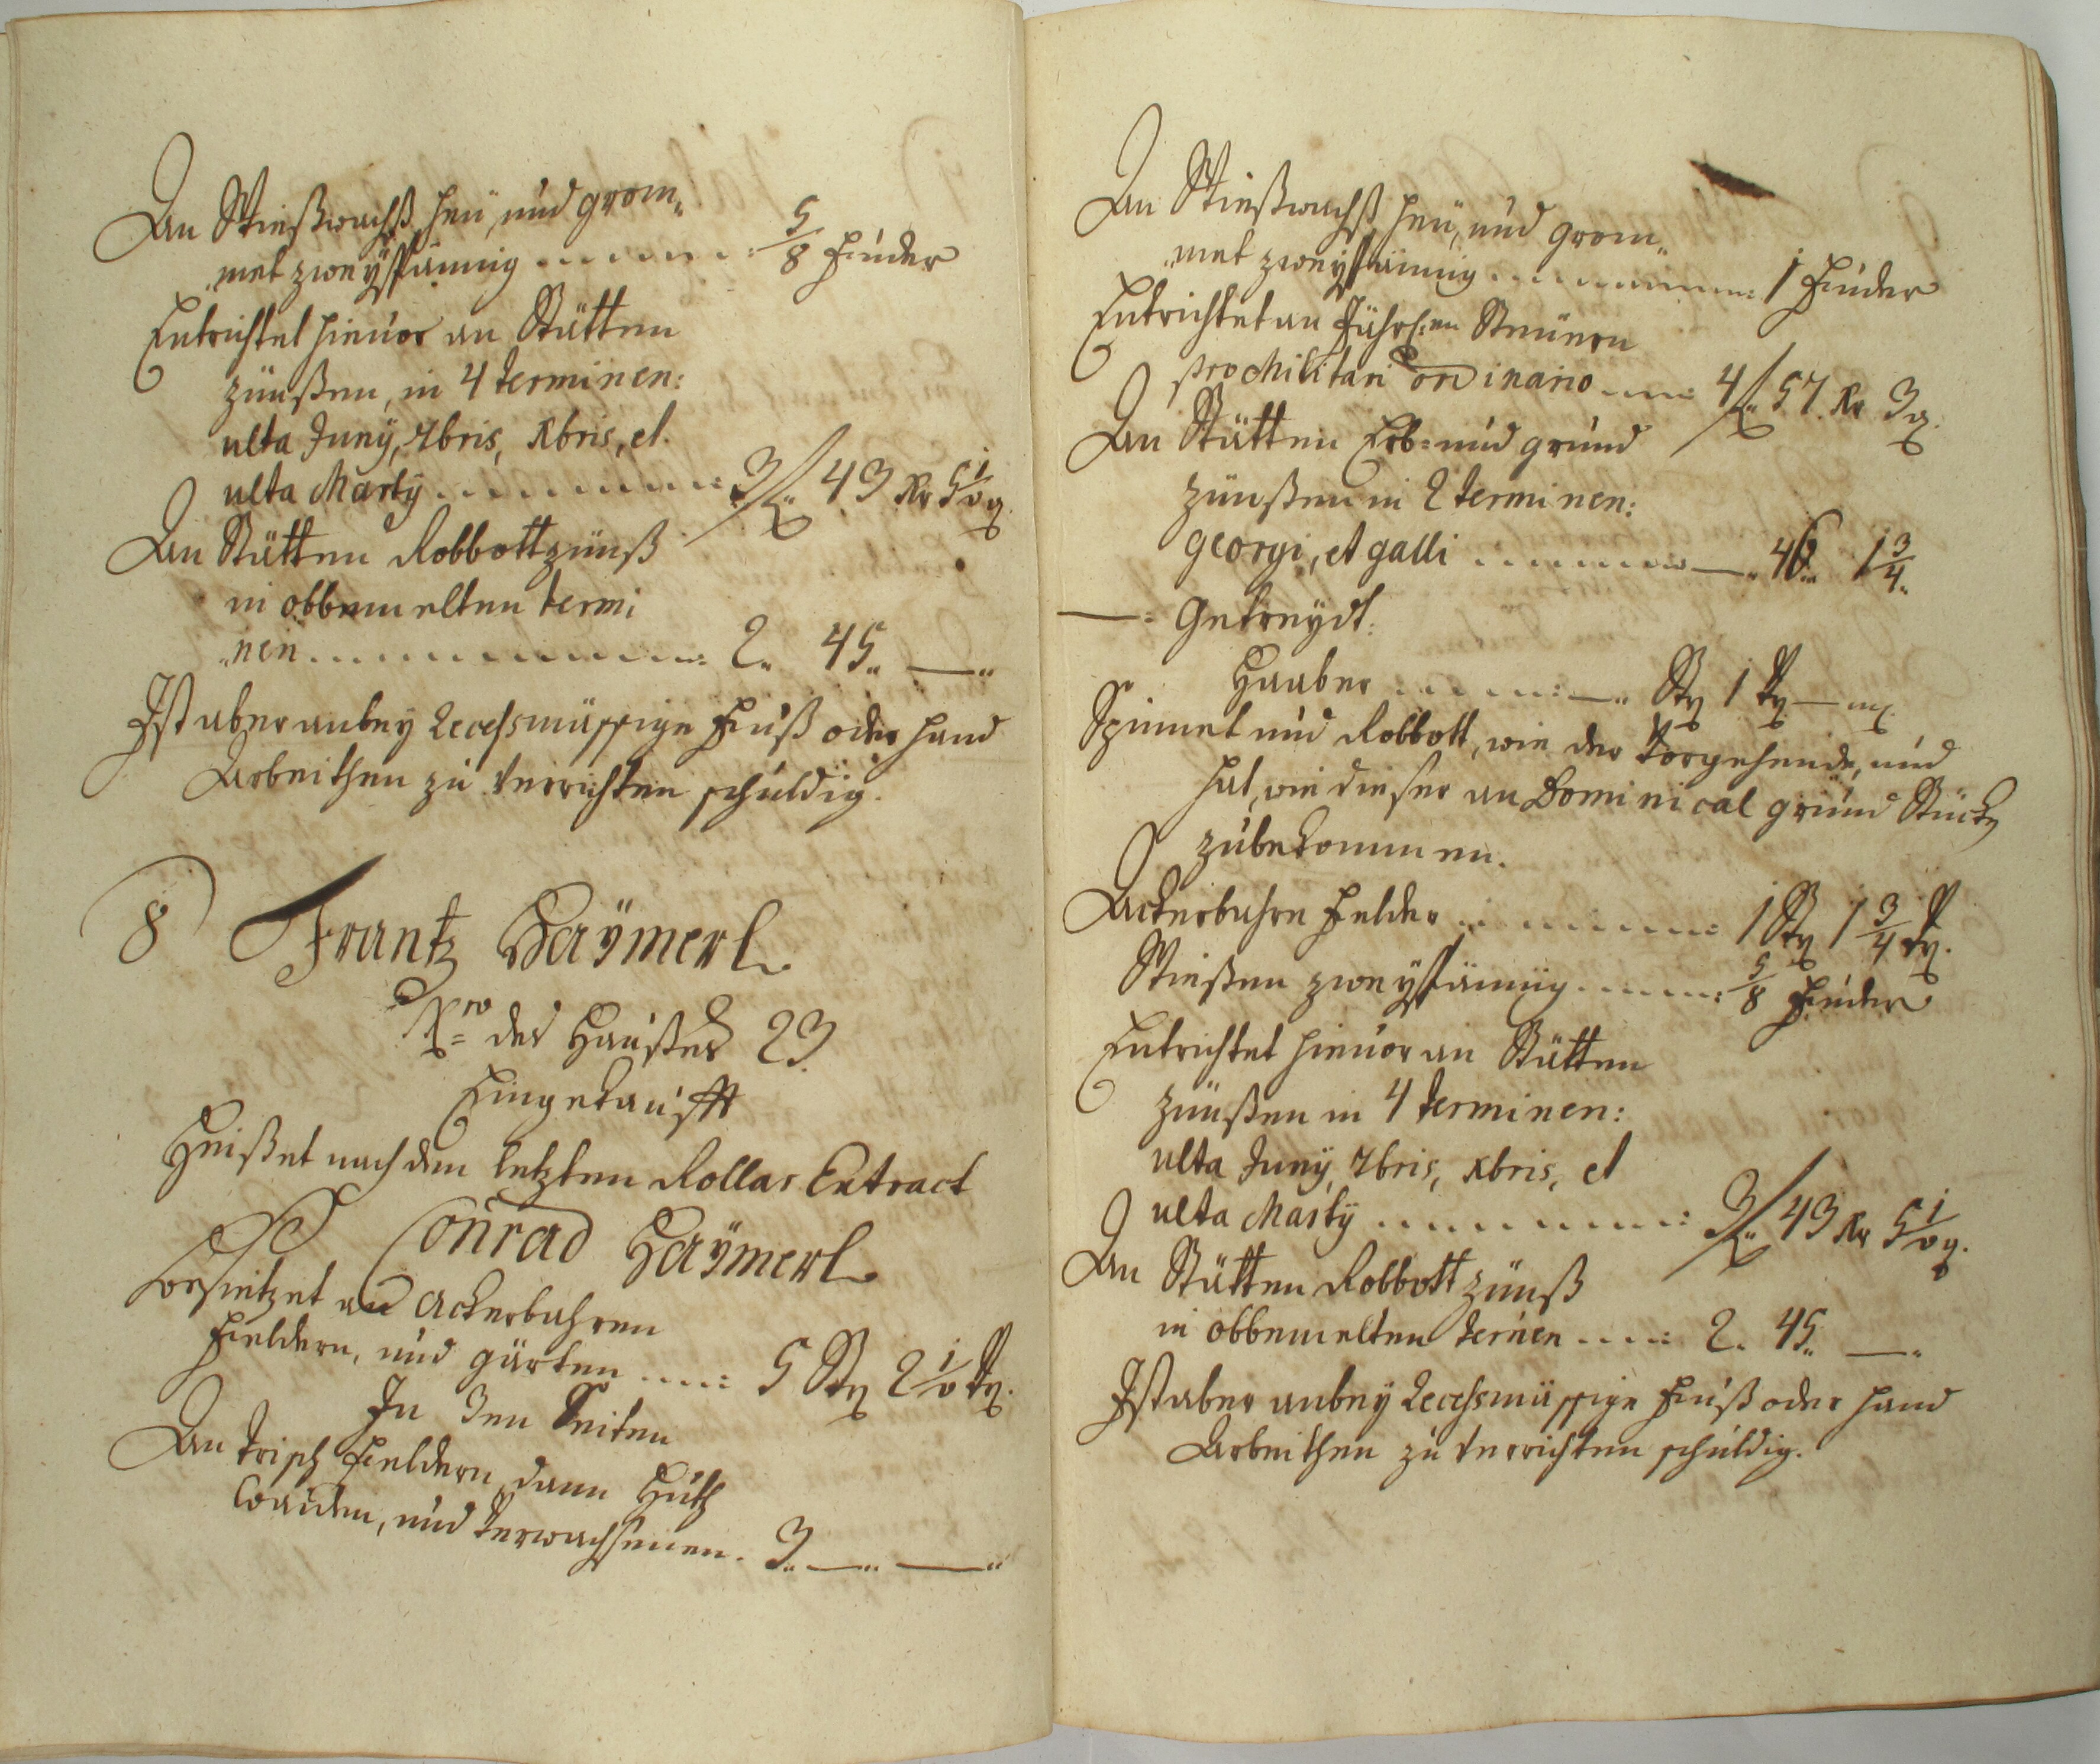 An Wießwachß heü, und grom„
„met zweyspännig ........ 5/8 Fuder
Entrichtet hievor an Stätten
zünßen, in 4 terminen:
ulta Juny, 7bris, Xbris, et
ulta Marty ........ 3 f„ 43 Kr 5 1/2 ₰
An Stätten Robbottzünß
in obbemelten termi
„nen ........ 2„ 45„ —„
Ist aber anbey Recessmässige Fuß oder Hand
Arbeithen zu verrichten schuldig.
8 Frantz Haÿmerl
Nro des Haußes 23
Eingekaufft
Heißet nach dem letzten Rollar Extract
Conrad Haÿmerl
Besietzet an Ackerbahren
Fieldern, und gärten .... 5 Str 2 1/2 Vrt.
In 3en Seiten
An trisch Fieldern, dann Huth
Waiden, und verwachsenen. 3„ —„ —„
An Wießwachß heü, und grom„
„met zweyspännig ........ 1 Fuder
Entrichtet an Jährl:en Steüern
pro Militari ordinario .... 4 f„ 57 Kr 3 ₰.
An Stätten Erb= und grund
zünßen in 2 terminen:
georgi, et galli ........ —„ 46„ 1 3/4„
—„ Getreydt:
Haaber ........ —„ Str 1 Vrt —
Spinnet und Robbott, wie der Vorgehende, und
hat, wie dieser an Dominical grund Stückh
zubekommen.
Ackerbahre Felder ........ 1 Str 1 3/4 Vrt.
Wießen zweyspännig ........ 5/8 Fuder
Entrichtet hievor an Stätten
zünßen in 4 terminen:
ulta Juny, 7bris, Xbris, et
ulta Marty ........ 3 f„ 43 Kr 5 1/2 ₰.
An Stätten Robbott zünß
in obbemelten ternen .... 2„ 45„ —„
Ist aber anbey Recessmässige Fuß oder Hand
Arbeithen zu verrichten schuldig.